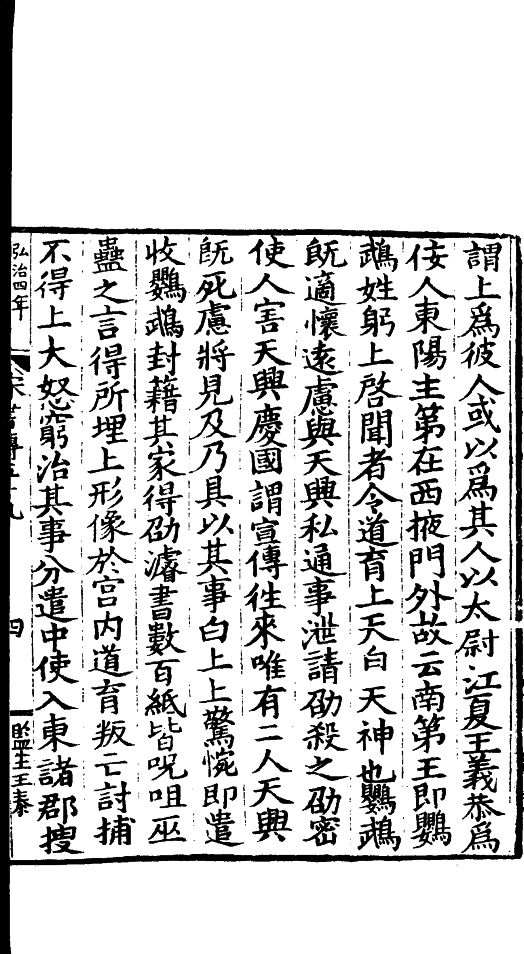 謂上爲彼人或以爲其人以太尉江夏王義恭爲
佞人東陽主第在西掖門外故云南第王即鸚
鵡姓躬上啓聞者令道育上天白天神也鸚鵡
既適懷遠慮與天興私通事泄請劭殺之劭密
使人害天興慶國謂宣傳徃來唯有二人天興
旣死慮將見及乃具以其事白上上驚惋即遣
收鸚鵡封籍其家得劭濬書數百紙皆呪咀巫
蠱之言得所埋上形像於宫内道育叛亡討捕
不得上大怒窮治其事分遣中使入東諸郡搜
弘治四年
四
監生王泰